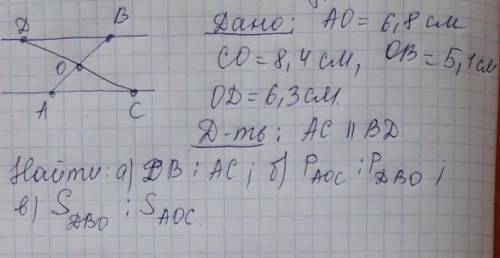 Дано: AO = 6,8 см
CO = 8,4 см, OB = 5,1 см
OD = 6,3 см
Д-ть: AC || BD
Найти: а) DB : AC ; б) P AOC : P DBO ;
в) S DBO : S AOC.
D
B
O
A
C